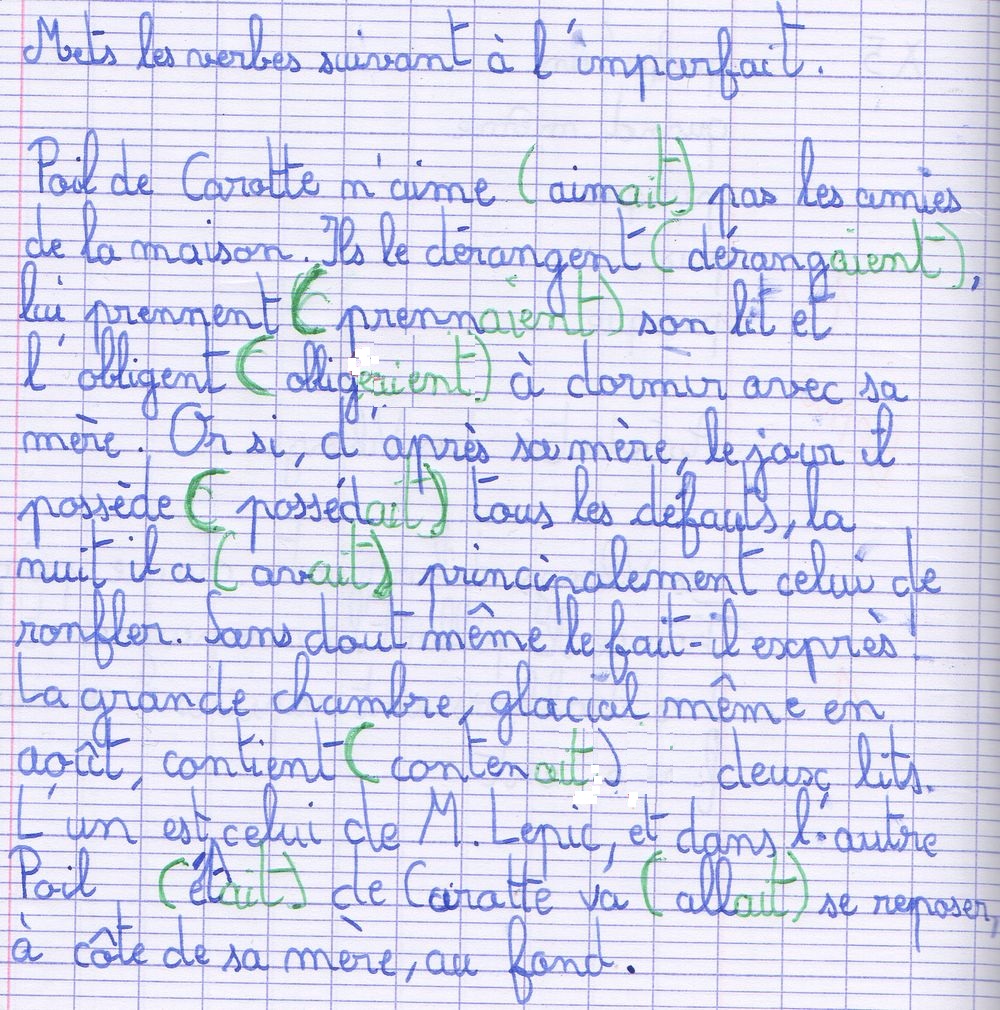 Mets les verbes suivant à l'imparfait.
Poil de Carotte n'aime (aimait) pas les amies
de la maison. Ils le dérangent (dérangaient),
lui prennent (prennaient) son lit et
l'obligent (obligeaient) à dormir avec sa
mère. Or si, d'après sa mère, le jour il
possède (possédait) tous les défauts, la
nuit il a (avait) principalement celui de
ronfler. Sans dout même le fait-il exprès!
La grande chambre, glacial même en
août, contient (contenait) deux lits.
L'un est celui de M. Lepic, et dans l'autre
Poil (était) de Caratte va (allait) se reposer,
à côte de sa mère, au fond.